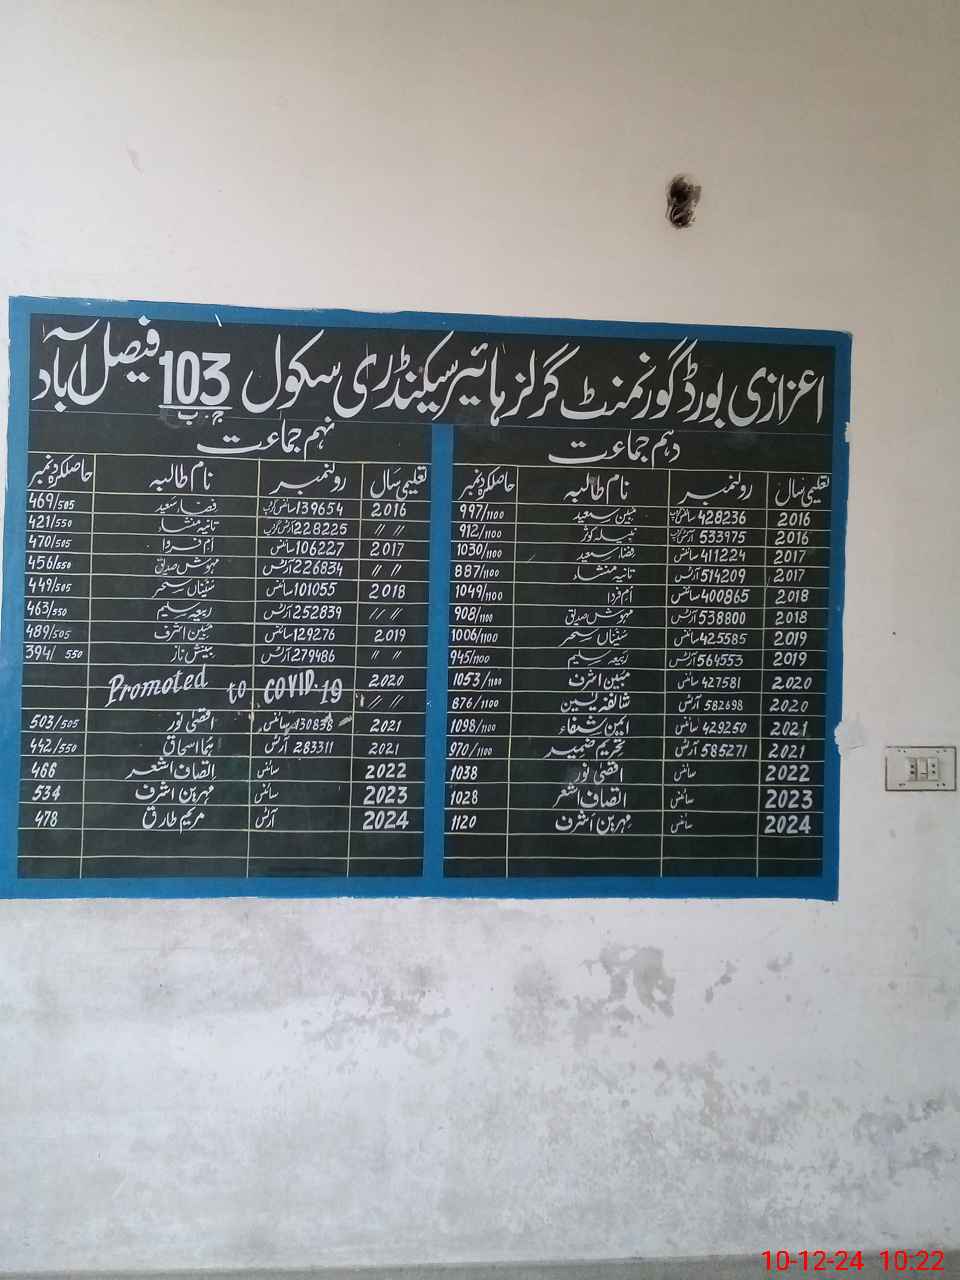 اعزازی بورڈ گورنمنٹ گرلز ہائیر سیکنڈری سکول 103 ج ب فیصل آباد
دہم جماعت
تعلیمی سال رولنمبر نام طالبہ حاصلکردہ نمبر
2016 428236 سائنس گروپ مبین سعید 997/1100
2016 533975 آرٹس گروپ نبیلہ کوثر 912/1100
2017 411224 سائنس فضاء سعید 1030/1100
2017 514209 آرٹس تانیہ منشاء 887/1100
2018 400865 سائنس ام فردا 1049/1100
2018 538800 آرٹس مہوش صدیق 908/1100
2019 425585 سائنس سحر 1006/1100
2019 564553 آرٹس ربیعہ سلیم 945/1100
2020 427581 سائنس مبین اشرف 1053/1100
2020 582698 آرٹس شائفہ یٰسین 876/1100
2021 429250 سائنس ایمن شفاء 1098/1100
2021 585271 آرٹس تحریم ضمیر 970/1100
2022 سائنس اقصٰی نور 1038
2023 سائنس انصاف اشعر 1028
2024 سائنس مہرین اشرف 1120
نہم جماعت
تعلیمی سال رولنمبر نام طالبہ حاصلکردہ نمبر
2016 139654 سائنس گروپ فضاء سعید 469/505
// // 228225 آرٹس گروپ تانیہ منشاء 421/550
2017 106227 سائنس ام فردا 470/505
// // 226834 آرٹس مہوش صدیق 456/550
2018 101055 سائنس سحر 449/505
// // 252839 آرٹس ربیعہ سلیم 463/550
2019 129276 سائنس مبین اشرف 489/505
// // 279486 آرٹس بینش ناز 394/550
2020 Promoted to COVID.19
// //
2021 130838 سائنس اقصٰی نور 503/505
2021 283311 آرٹس ہما اسحاق 442/550
2022 سائنس انصاف اشعر 466
2023 سائنس مہرین اشرف 534
2024 آرٹس مریم طارق 478
10-12-24 10:22